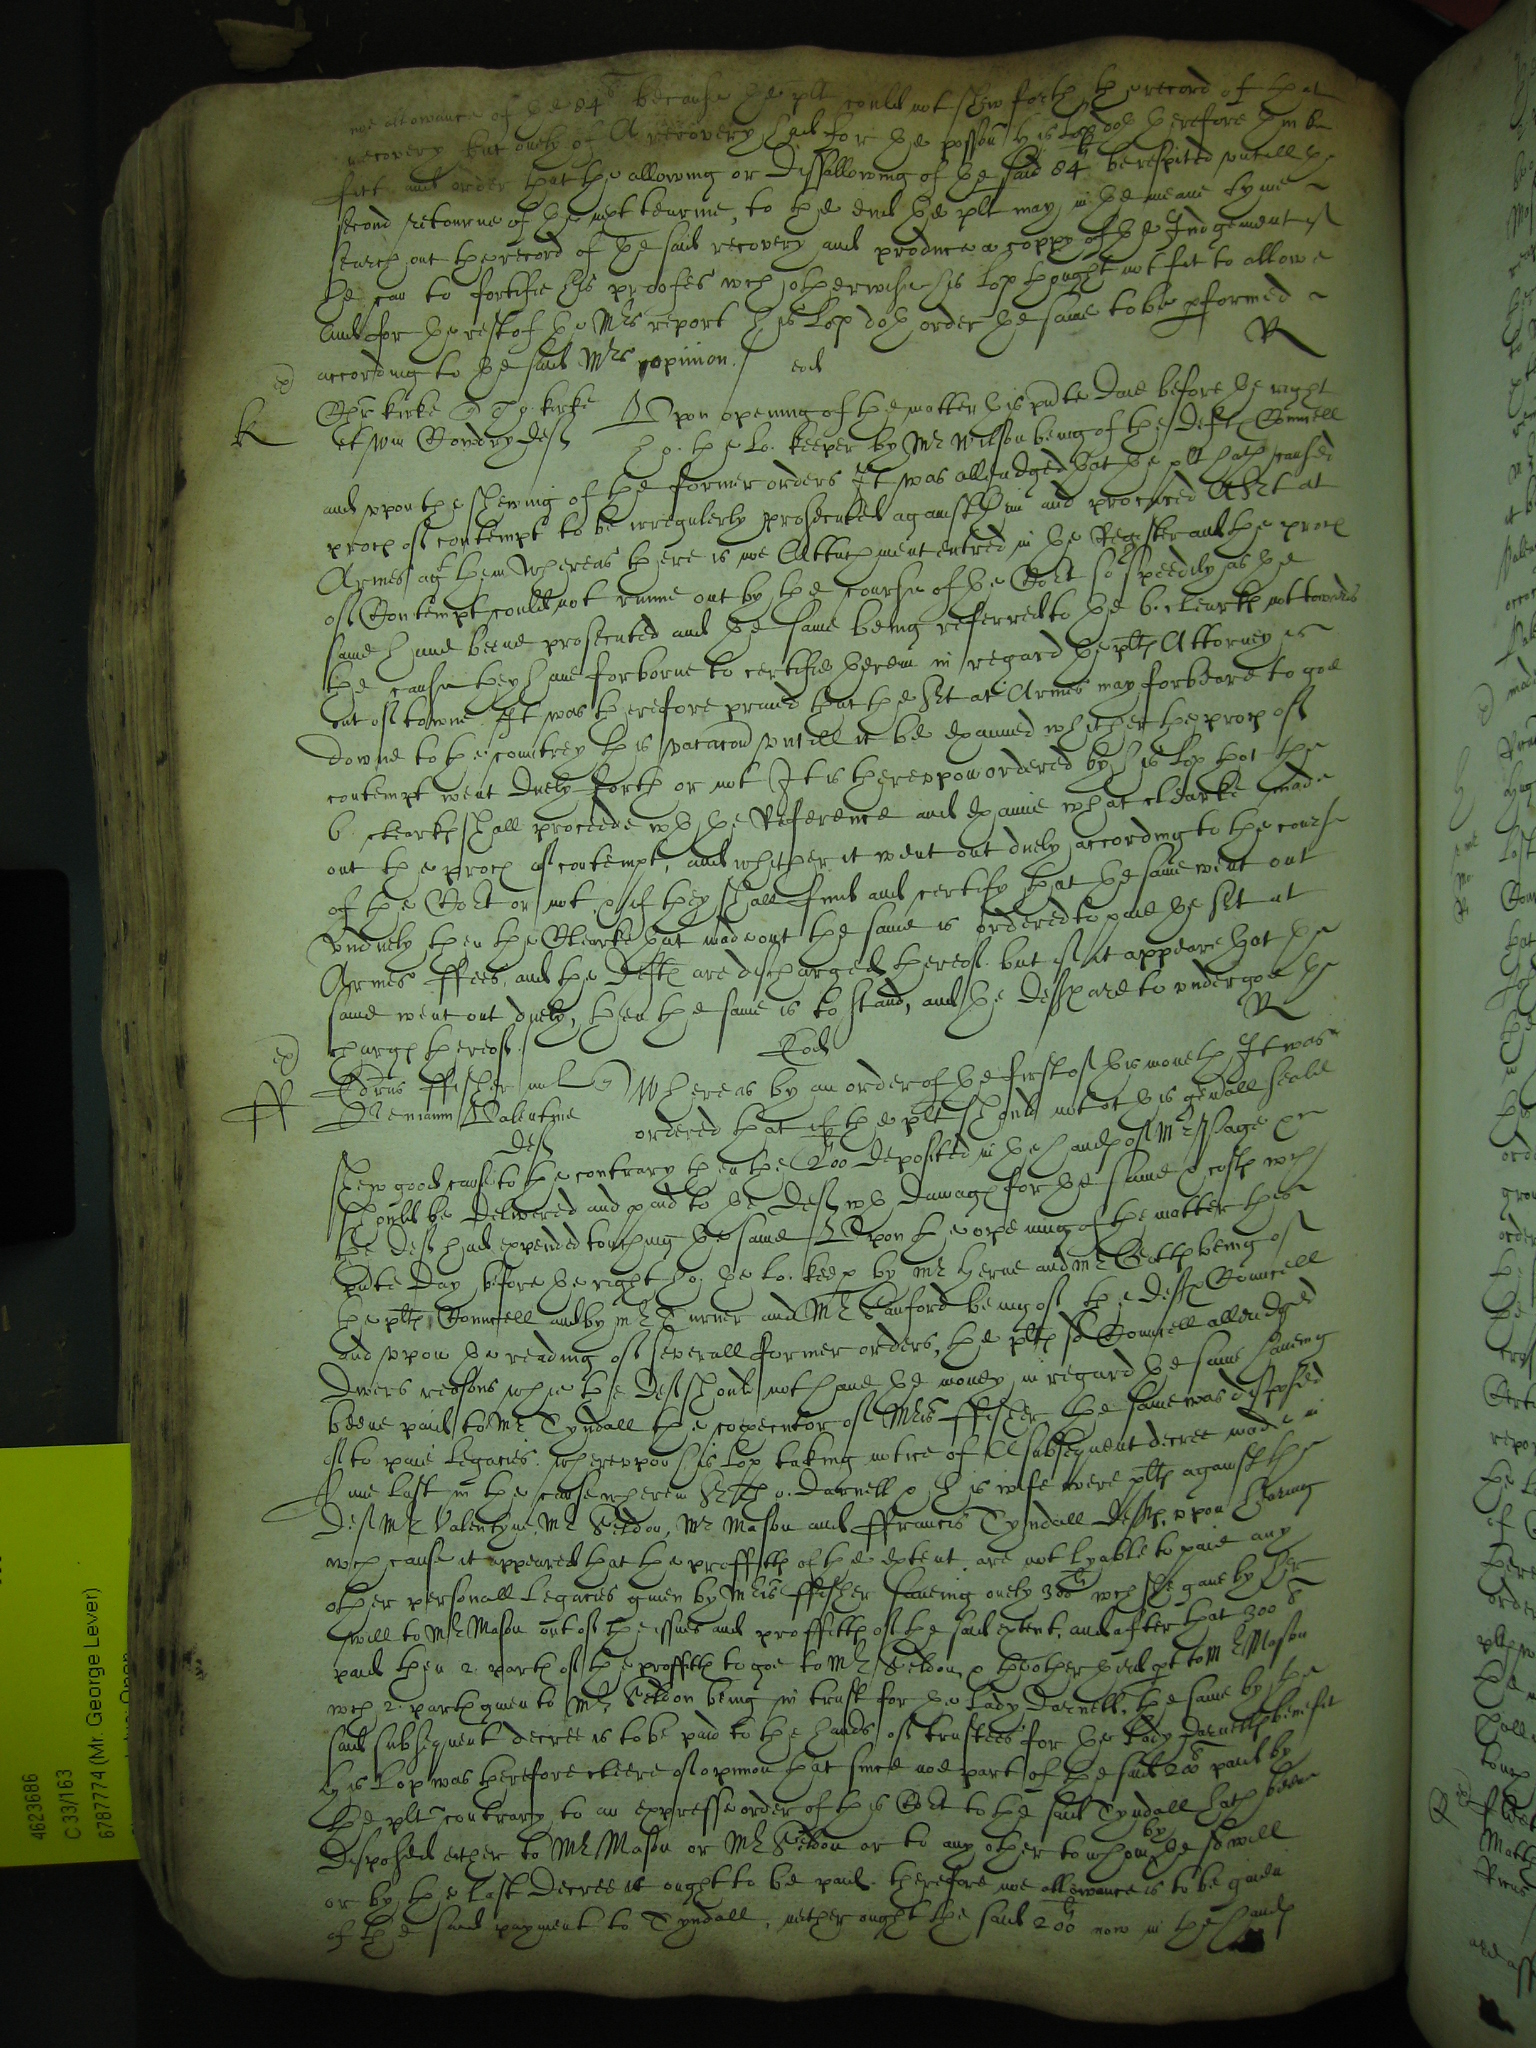 noe allowance of ye 84li because the plt could not shew forth the record of that
recovery but onely of A recovery had for the possion his Lop doth therefore thinke
fitt and order that the allowing or dissallowing of the said 84li be respited untill the
second retourne of the next tearme, to the end the plt may in the meane tyme
search out the record of the said recovery and produce a coppy of the Judgement if
he can to fortifie his proofes wch otherwise his Lop thought not fit to allowe
and for the rest of the Mrs report his Lop doth order the same to be pformed
according to the said Mrs opinion./ eod R
ex
K
Chr kirke Tho: kirke Upon opening of the matter this pnte daie before the right
et Wm Gondry defts ho: the lo: keeper by Mr Wilson being of the Defts Councell
and upon the shewing of the former orders It was alleadged that the plt hath caused
proces of contempt to be irregulerly prosecuted against him and procured A Srt at
Armes agt them whereas there is noe Attachment entred in the Register and the proces
of Contempt could not runne out by the course of the Cort so speedily as the
same have beene prosecuted and the same being referred to the 6. clearkes not towards
the cause they have forborne to certifie therein in regard the plts Attorney is
out of towne. It was therefore praied that the Srt at Armes may forbeare to goe
downe to the countrey this vacacon untill it be examined whither the proces of
contempt went duely forth or not It is thereupon ordered by his Lop that the
6. clearkes shall proceede wth the Reference and examine what clearke made
out the proces of contempt, and whither it went out duely according to the course
of the Cort or not & if they shall finde and certify that the same went out
unduely then the Clearke that made out the same is ordered to paie the Srt at
Armes ffees, and the Defts are discharged thereof. but if it appeare that the
same went out duely, then the same is to stand, and the Defts are to undergoe the
charges thereof./ Eod R
ex
ff
Edrus ffisher mil Whereas by an order of the first of this moneth It was
Beniamin Valentyne ordered that if the plt should not at this genall seale
deft
shew good cause to the contrary then the 200li deposited in the hands of Mr Page
should be delivered and paid to the Deft wth damages for the same & costs wch
the deft had expended touching the same Upon the opening of the matter this
pnte day before the right ho: the lo: keep by Mr Herne and Mr being of
the plts Councell and by Mr Turner and Mr Sanford being of the Defts Councell
and upon the reading of severall former orders, the plts sd Councell alleadged
divers reasons why the deft should not have the money in regard the same haveing
beene paid to Mr Tyndall the coexecutor of Mris ffisher the same was disposed
of to paie Legacies. whereupon his Lop taking notice of A subsequent decree made in
June last in the cause wherein Sr Tho: Darnell & his wife were plts against the
deft Mr Valentyne, Mr Seldon, Mr Mason and ffrancis Tyndall Defts, upon hearing
wch cause it appeared that the proffitts of the extent are not lyable to paie any
other personall Legacies given by Mris ffisher saveing onely 300li wch she gave by her
will to Mr Mason out of the issues and proffitts of the said extent, and after that 300li
paid then 2. parts of the proffitts to goe to Mr Seldon, & the other third pt to Mr Mason
wch 2. parts given to Mr Seldon being in trust for the Lady Darnell, the same by the
said subsequent decree is to be paid to the hands of trustees for the Lady Darnells benefit
his Lop was therefore cleere of opinion that since noe part of the said 200li paid by
the plt contrary to an expresse order of this Cort to the said Tyndall hath beene
disposed either to Mr Mason or Mr Seldon or to any other to whom by the sd will
or by the last Decree it ought to be paid. therefore noe allowance is to be given
of the said payment to Tyndall, neither ought the said 200li now in the hands
4623686
C 33/163
67877774 (Mr. George Lever)